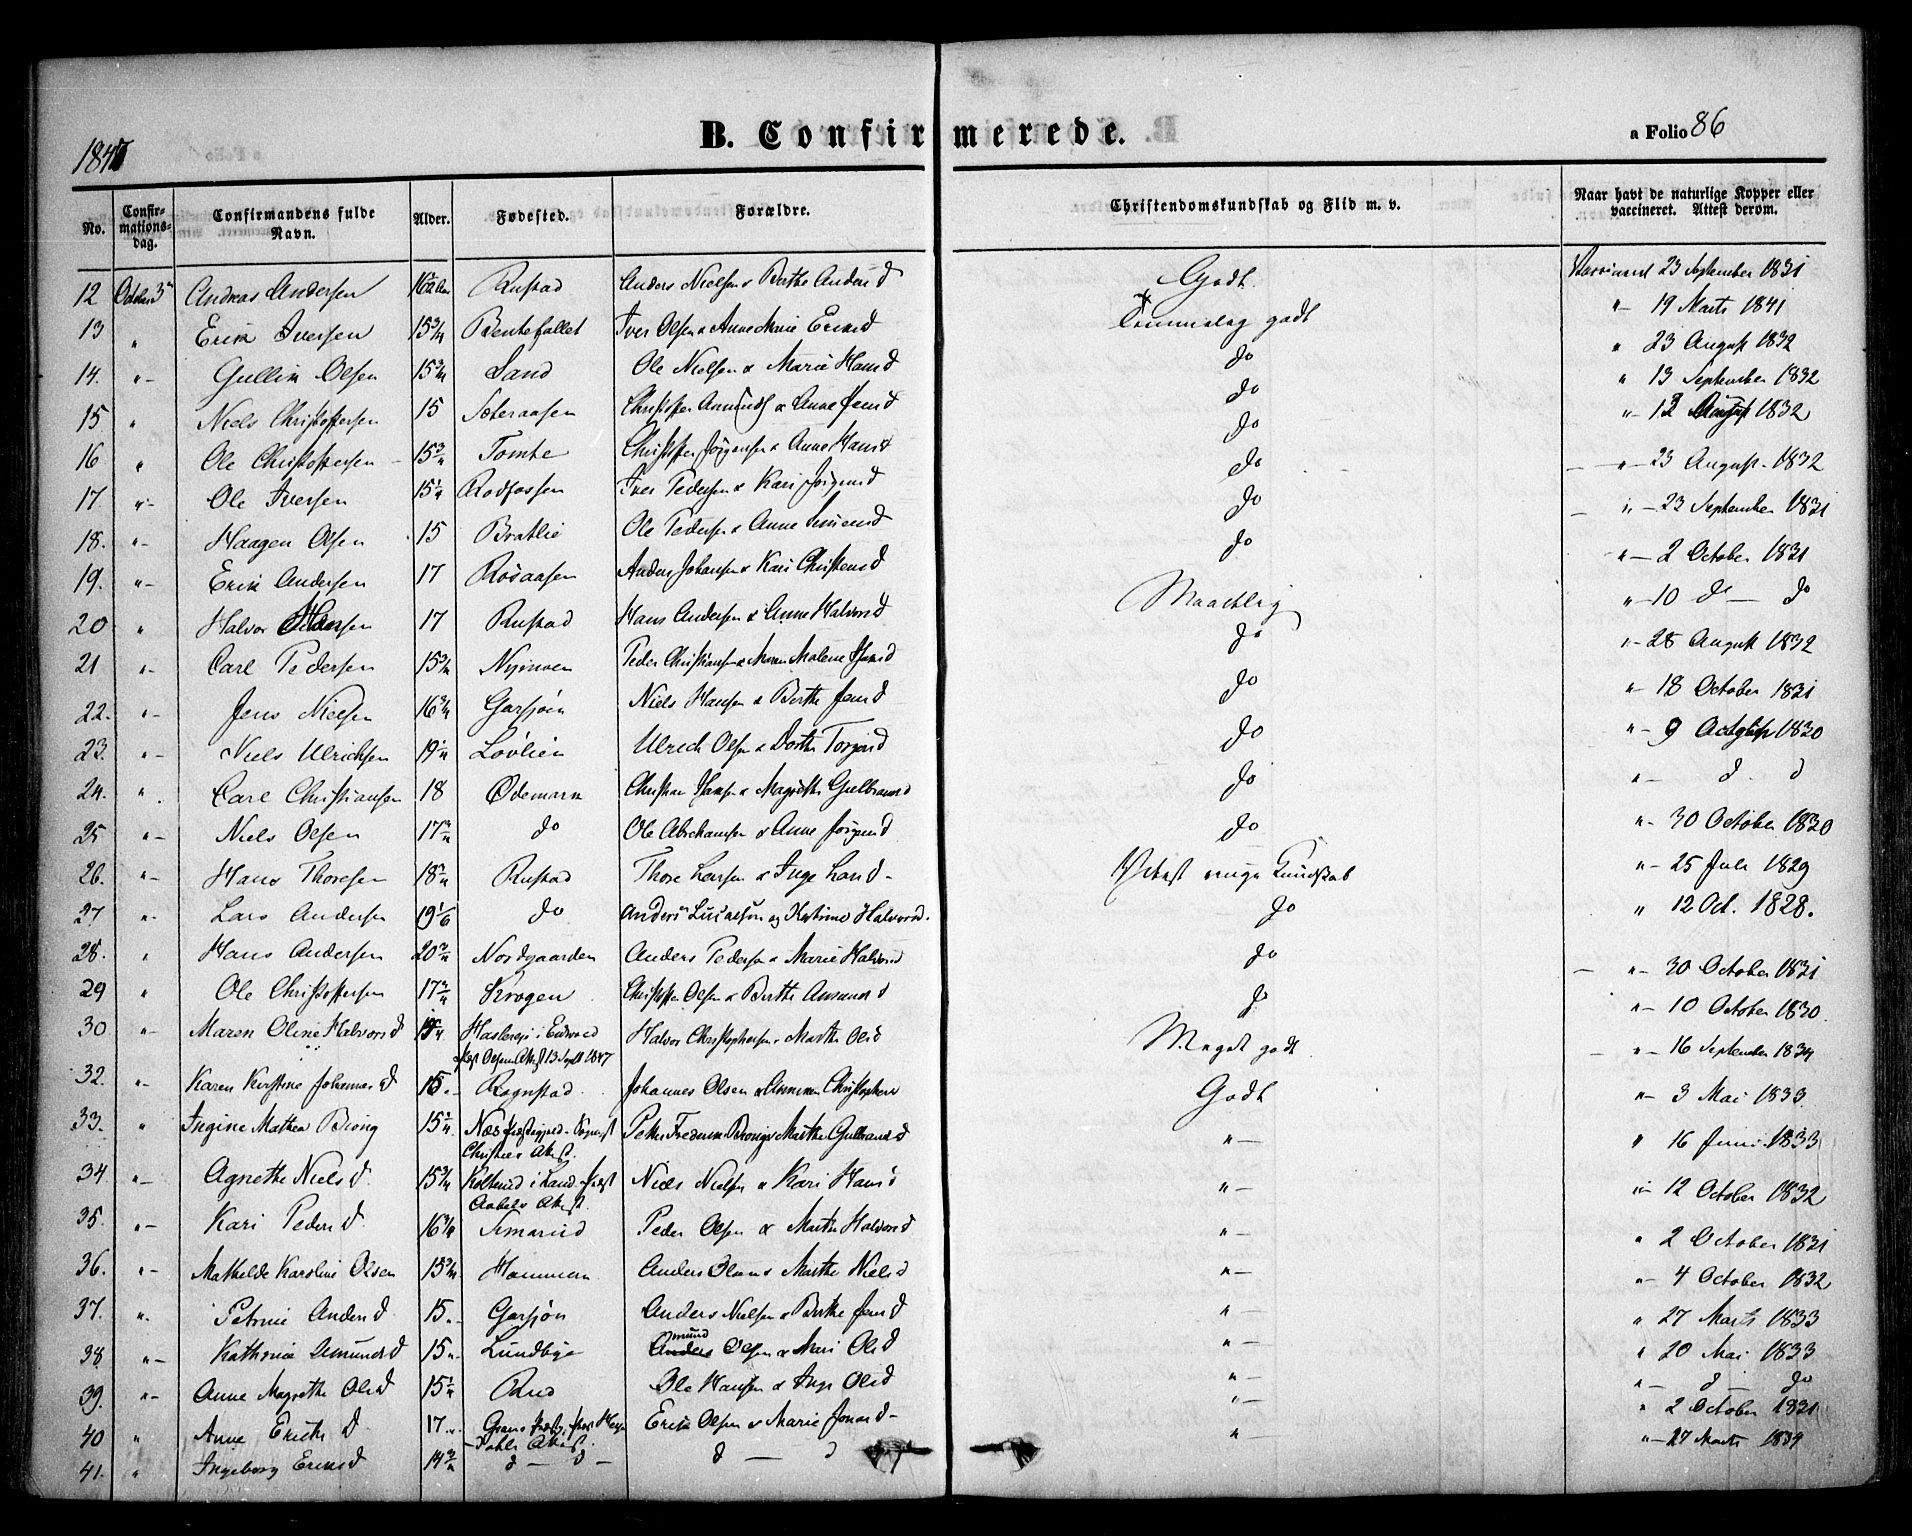 1847
B. Confirmerede.
a Folio 86
No. Confirmationsdag. Confirmandens fulde Navn. Alder. Fødested. Forældre. Christendomskundskab og Flid m. v. Naar havt de naturlige Kopper eller vaccineret. Attest derom.
12 Andreas Andersen Rustad Anders Nielsen & Berthe Andersd Godt. 23 September 1831
13 " Erik Iversen 15 3/4 Bentefallet Iver Olsen & Anne Marie Ericsd Temmelig godt " 19 Marts 1841
14. "- Gullik Olsen 15 3/4 Sand Ole Nielsen & Marie Hansd do " 23 August 1832
15 " Niels Christoffersen 15 Sæteraasen Christoffer Amunds & Anne Jensd do " 13 September 1832
16 " Ole Christoffersen 15 3/4 Tomte Christoffer Jørgensen & Anne Hansd do "- 12 August 1832
17. "- Ole Iversen 15 1/4 Rodfossen Iver Pedersen & Kari Jørgensd do "- 23 August 1832
18. "- Haagen Olsen 15 Bratlie Ole Pedersen & Anne Simensd do "- 23 September 1831
19. "- Erik Andersen 17 Rosaasen Anders Johansen & Kari Christensd do "- 2 October 1831
20 " Halvor Hansen 17 Rustad Hans Andersen & Anne Halvorsd Maadelig "- 10 do — do
21 "- Carl Pedersen 15 3/4 Nymoen Peder Christiansen & Maren Malene Hansd do "- 28 August 1832
22. "- Jens Nielsen 16 3/4 Garsjøn Niels Hansen & Berthe Jensd do "- 18 October 1831
23. "- Niels Ulrichsen 19 1/4 Løvlien Ulrich Olsen & Dorthe Torgersd do "- 9 October 1830
24. " Carl Christiansen 18 Ødemark Christian Hansen & Magrethe Gulbransd do "- d d
25 "- Niels Olsen 17 3/4 do Ole Abrahamsen & Anne Jørgensd do "- 30 October 1830
26. "- Hans Thoresen 18 3/4 Rustad Thore Larsen & Inge Larsd- Yderst ringe Kundskab "- 25 Juli 1829
27 "- Lars Andersen 19 1/6 do Anders Lucassøn og Katrine Halvorsd. do " 12 Oct. 1828.
28. " Hans Andersen 20 3/4 Nordgaarden Anders Pedersen & Marie Halvorsd do "- 30 October 1831
29 " Ole Christoffersen 17 3/4 Skogen Christoffer Olsen & Berthe Amundsd do "- 10 October 1830
30 "- Maren Oline Halvorsd Halvor Christophersen & Marthe Olsd Meget godt "- 16 September 1834
Attest 13 Septb 1847
32. "- Karen Kirstine Johannesd 15 "- Rognstad. Johannes Olsen & Christophersd Godt "- 3 Mai 1833
33. " Ingine Mathea Biong 15 1/4 Næs Peter Frederik Biong & Marthe Gulbrandsd "- " 16 Juni 1833
Christies Attest.
34 "- Agnethe Nielsd 15 3/4 i Land Niels Nielsen & Kari Hansd "- "- 12 October 1832
Aabels Attest.
35. "- Kari Pedersd 16 3/4 Simarud Peder Olsen & Marthe Halvorsd "- " 2 October 1831
36. "- Mathilde Karoline Olsen 15 3/4 Hammeren Anders Olsen & Marthe Nielsd "- "- 4 October 1832
37. " Petrine Andersd 15 "- Garsjøn Anders Nielsen & Berthe Jensd "- " 27 Marts 1833
38 "- Kathrine Amundsd 15 "- Lundbye Anders mund Olsen & Mari Olsd "- " 20 Mai 1833
39. "- Anne Magrethe Olsd 15 1/4 Rud Ole Hansen & Inge Olsd "- "- d — do
40 " Anne Eriksd 17 "- Grans Erik Olsen & Marie Jonasd- "- " 2 October 1831
41. " Ingeborg Eriksd 14 3/4 d — d — d — d "- "- 27 Marts 1834